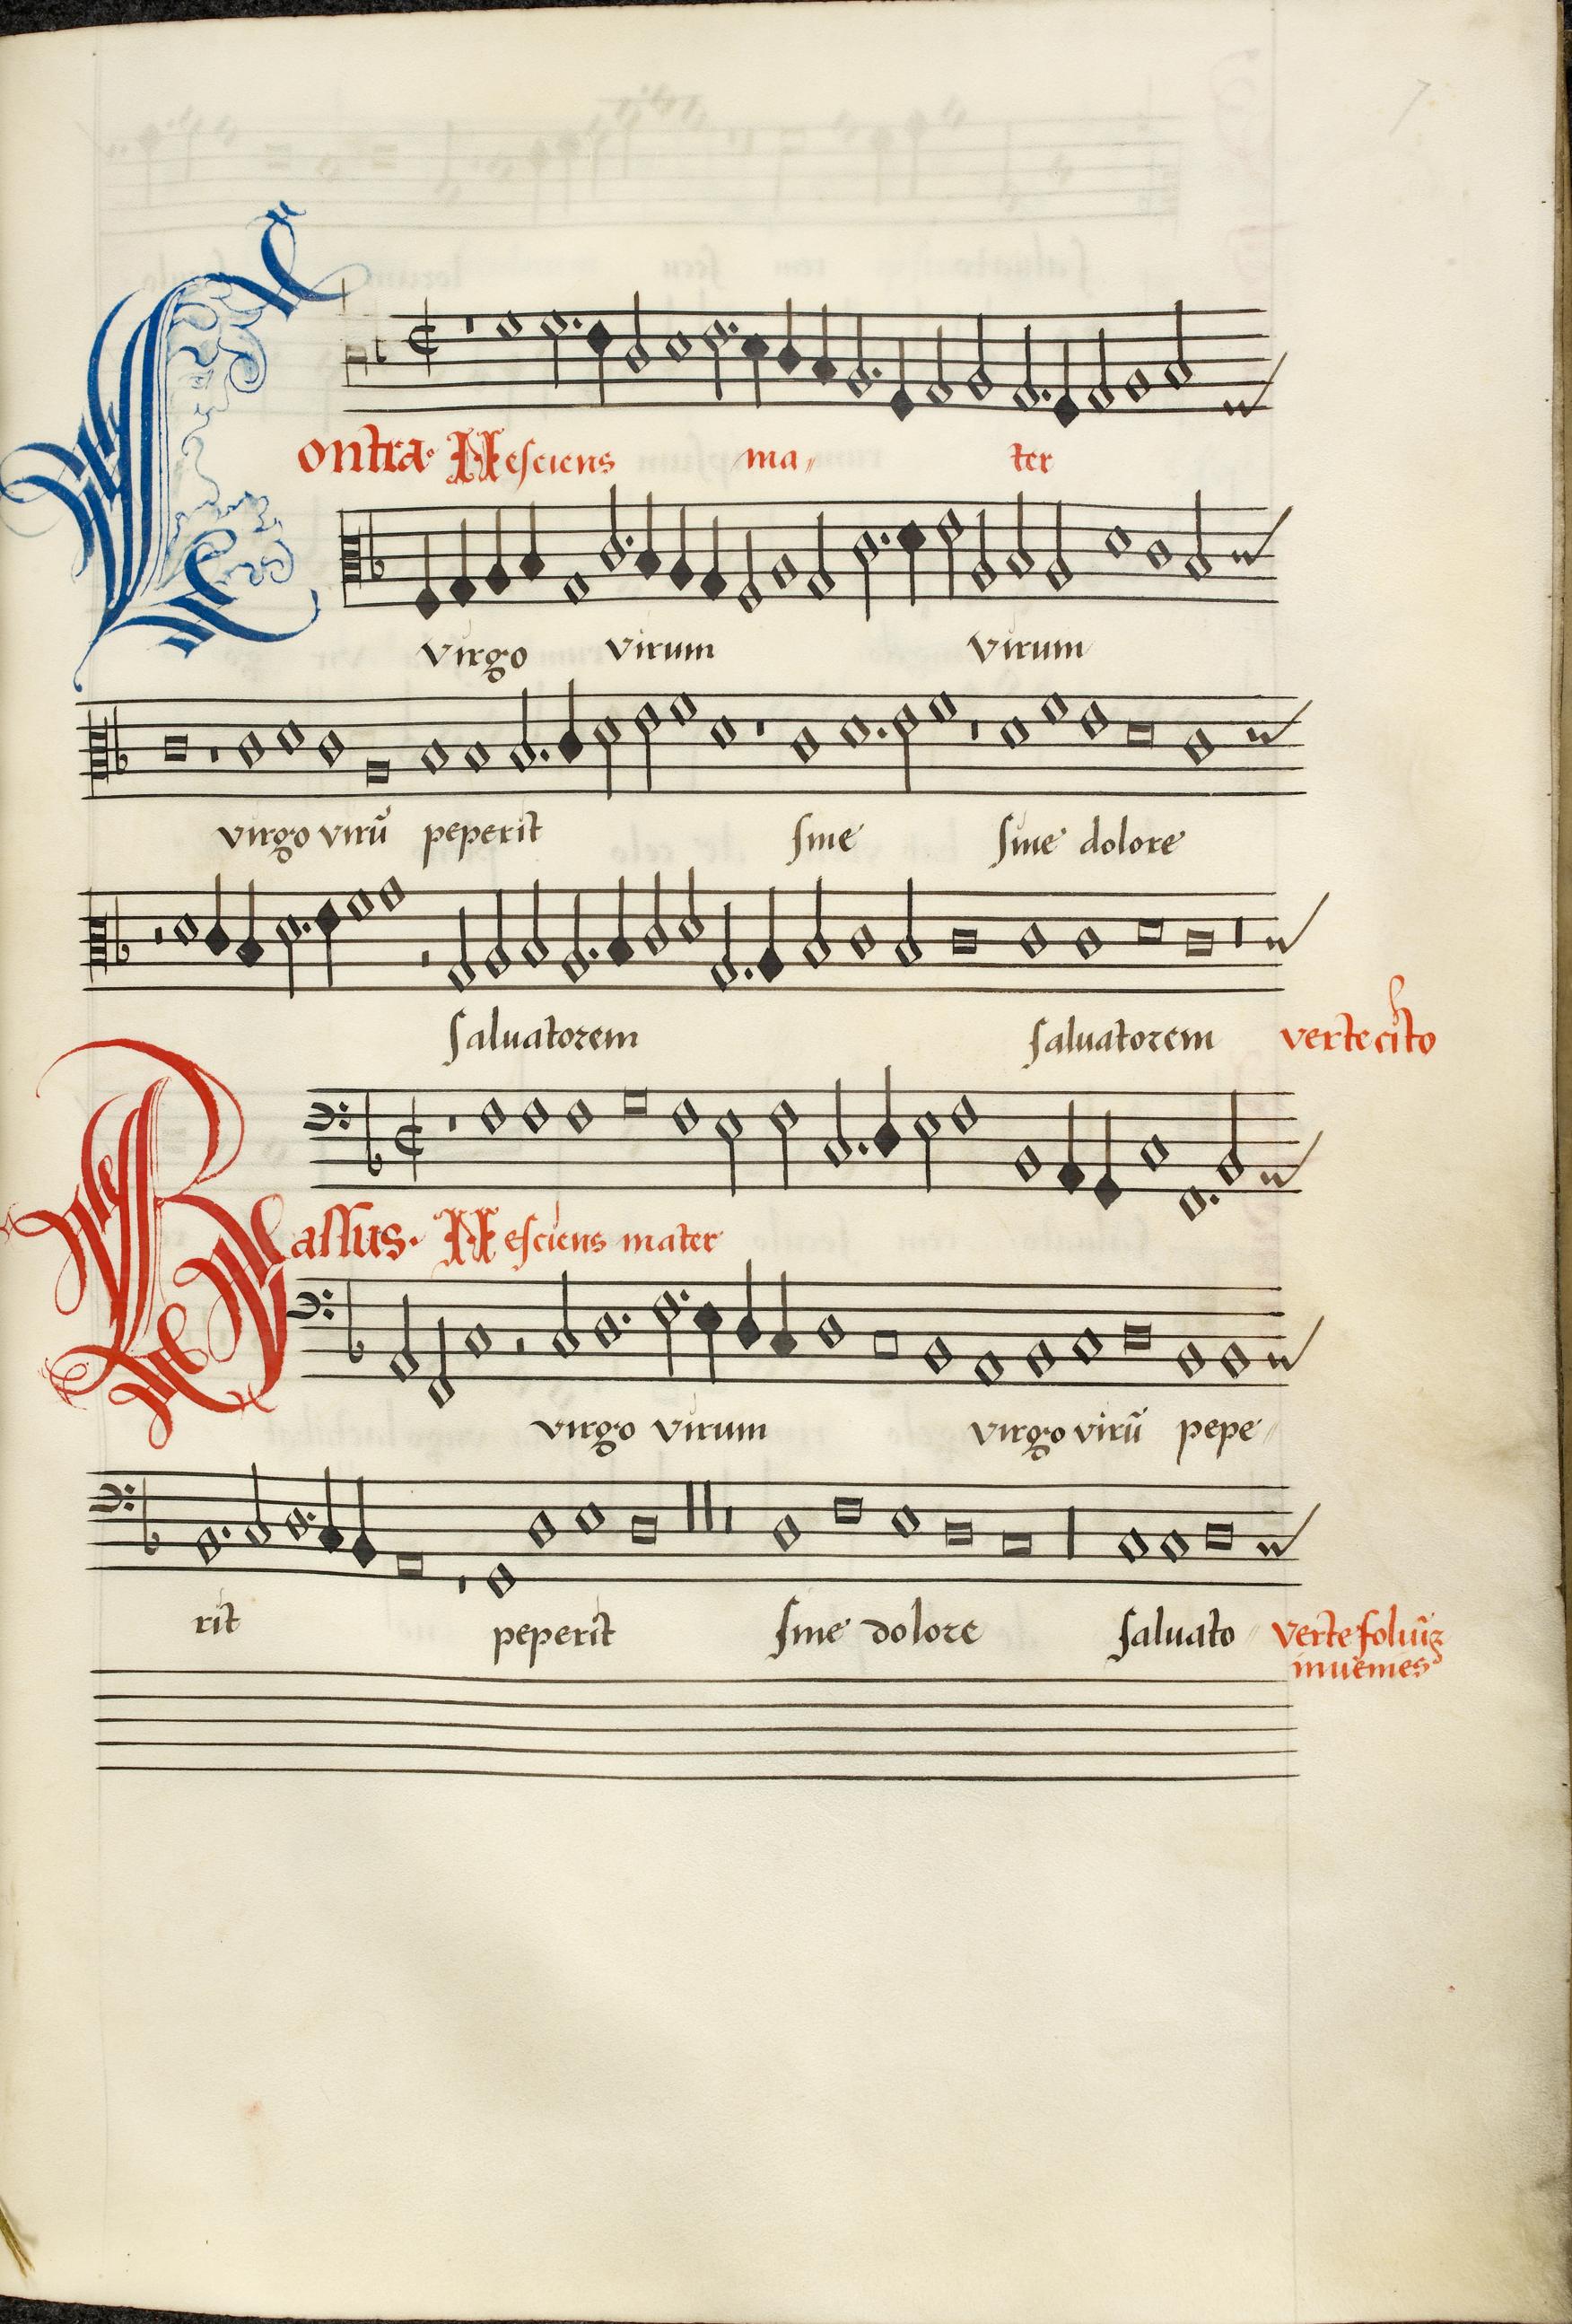 7
Contra· Nesciens ma- ter
virgo virum virum
virgo virũ peperit sine sine dolore
saluatorem saluatorem verte cito
Bassus· Nesciens mater
virgo virum virgo virũ pepe-
rit peperit sine dolore saluato verte foliũ ꝫ
inuenies